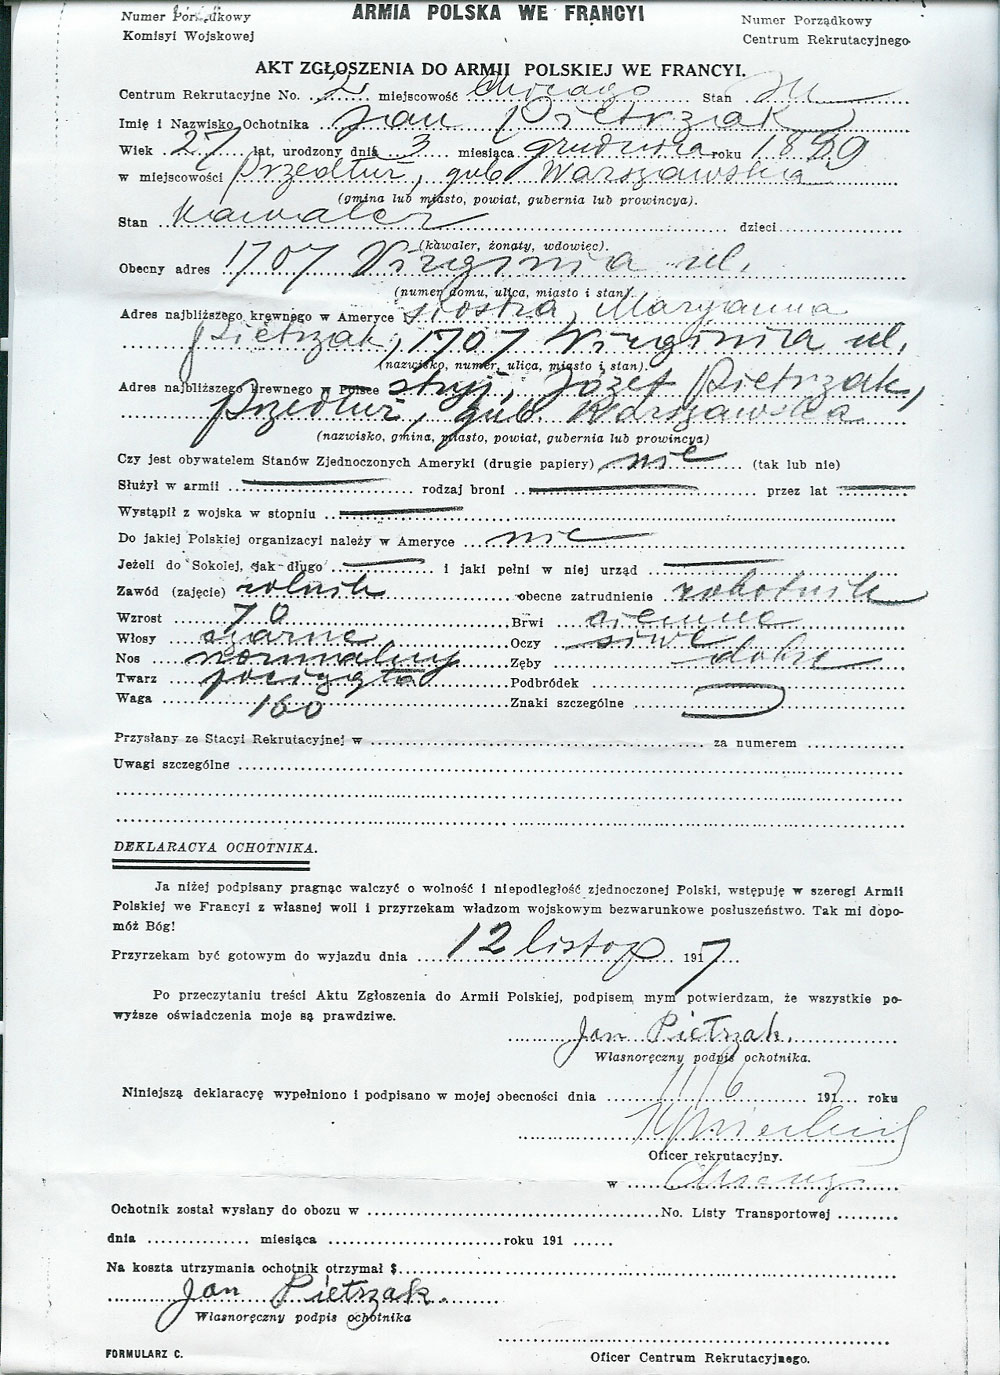 ARMIA POLSKA WE FRANCYI
Numer Porządkowy
Komisyi Wojskowej
Numer Porządkowy
Centrum Rekrutacyjnego
AKT ZGŁOSZENIA DO ARMII POLSKIEJ WE FRANCYI.
Centrum Rekrutacyjne No. 2 miejscowość Chicago Stan Ill
Imię i Nazwisko Ochotnika Jan Pietrzak
Wiek 27 lat, urodzony dnia 3 miesiąca grudnia roku 1889
w miejscowości gub Warszawska
(gmina lub miasto, powiat, gubernia lub prowincya).
Stan Kawaler dzieci
(kawaler, żonaty, wdowiec).
Obecny adres 1707 Wirginia ul.
(numer domu, ulica, miasto i stan).
Adres najbliższego krewnego w Ameryce siostra Maryanna
Pietrzak, 1707 Wirginia ul.
(nazwisko, numer, ulica, miasto i stan).
Adres najbliższego krewnego w Polsce stryj, Józef Pietrzak,
gub. Warszawska
(nazwisko, gmina, miasto, powiat, gubernia lub prowincya)
Czy jest obywatelem Stanów Zjednoczonych Ameryki (drugie papiery) nie (tak lub nie)
Służył w armii rodzaj broni przez lat
Wystąpił z wojska w stopniu
Do jakiej Polskiej organizacyi należy w Ameryce nie
Jeżeli do Sokolej, jak długo i jaki pełni w niej urząd
Zawód (zajęcie) rolnik obecne zatrudnienie robotnik
Wzrost 70 Brwi ciemne
Włosy czarne Oczy siwe
Nos normalny Zęby dobre
Twarz pociągła Podbródek
Waga 160 Znaki szczególne
Przysłany ze Stacyi Rekrutacyjnej w za numerem
Uwagi szczególne
DEKLARACYA OCHOTNIKA.
Ja niżej podpisany pragnąc walczyć o wolność i niepodległość zjednoczonej Polski, wstępuję w szeregi Armii
Polskiej we Francyi z własnej woli i przyrzekam władzom wojskowym bezwarunkowe posłuszeństwo. Tak mi dopo-
móż Bóg!
Przyrzekam być gotowym do wyjazdu dnia 12 listop 1917
Po przeczytaniu treści Aktu Zgłoszenia do Armii Polskiej, podpisem mym potwierdzam, że wszystkie po-
wyższe oświadczenia moje są prawdziwe.
Jan Pietrzak.
Własnoręczny podpis ochotnika.
Niniejszą deklaracyę wypełniono i podpisano w mojej obecności dnia 11/6 1917 roku
Oficer rekrutacyjny.
w Chicago
Ochotnik został wysłany do obozu w No. Listy Transportowej
dnia miesiąca roku 191
Na koszta utrzymania ochotnik otrzymał $
Jan Pietrzak.
Własnoręczny podpis ochotnika
FORMULARZ C.
Oficer Centrum Rekrutacyjnego.